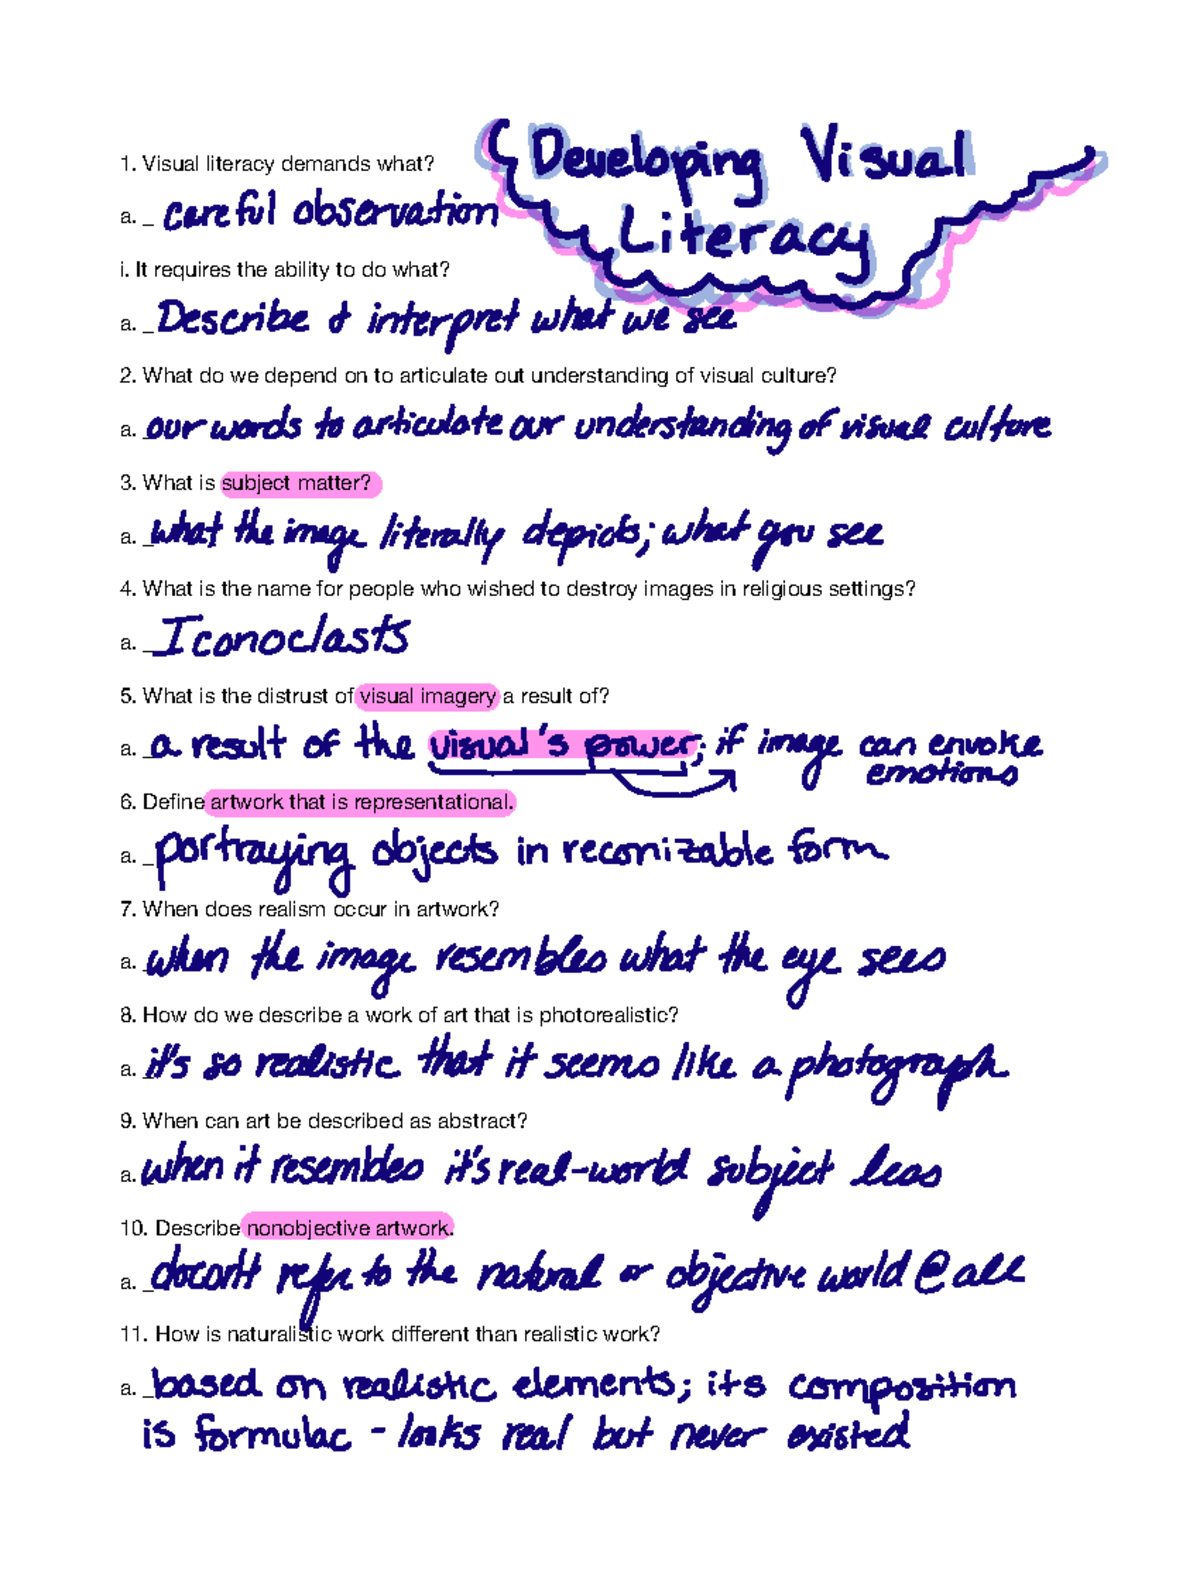 Developing Visual
Literacy
1. Visual literacy demands what?
a. _ careful observation
i. It requires the ability to do what?
a. _ Describe & interpret what we see
2. What do we depend on to articulate out understanding of visual culture?
a. our words to articulate our understanding of visual culture
3. What is subject matter?
a. _ what the image literally depicts; what you see
4. What is the name for people who wished to destroy images in religious settings?
a. _ Iconoclasts
5. What is the distrust of visual imagery a result of?
a. _ a result of the visual's power; if image can envoke
emotions
6. Define artwork that is representational.
a. _ portraying objects in reconizable form
7. When does realism occur in artwork?
a. when the image resembles what the eye sees
8. How do we describe a work of art that is photorealistic?
a. it's so realistic that it seems like a photograph
9. When can art be described as abstract?
a. when it resembles it's real-world subject less
10. Describe nonobjective artwork.
a. _ doesn't refer to the natural or objective world @ all
11. How is naturalistic work different than realistic work?
a. _ based on realistic elements; its composition
is formulac - looks real but never existed